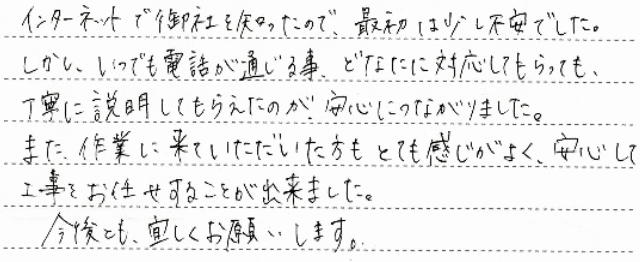 インターネットで御社を知ったので、最初は少し不安でした。
しかし、いつでも電話が通じる事、どなたに対応してもらっても、
丁寧に説明してもらえたのが、安心につながりました。
また、作業に来ていただいた方もとても感じがよく、安心して
工事をお任せすることが出来ました。
今後とも、宜しくお願いします。